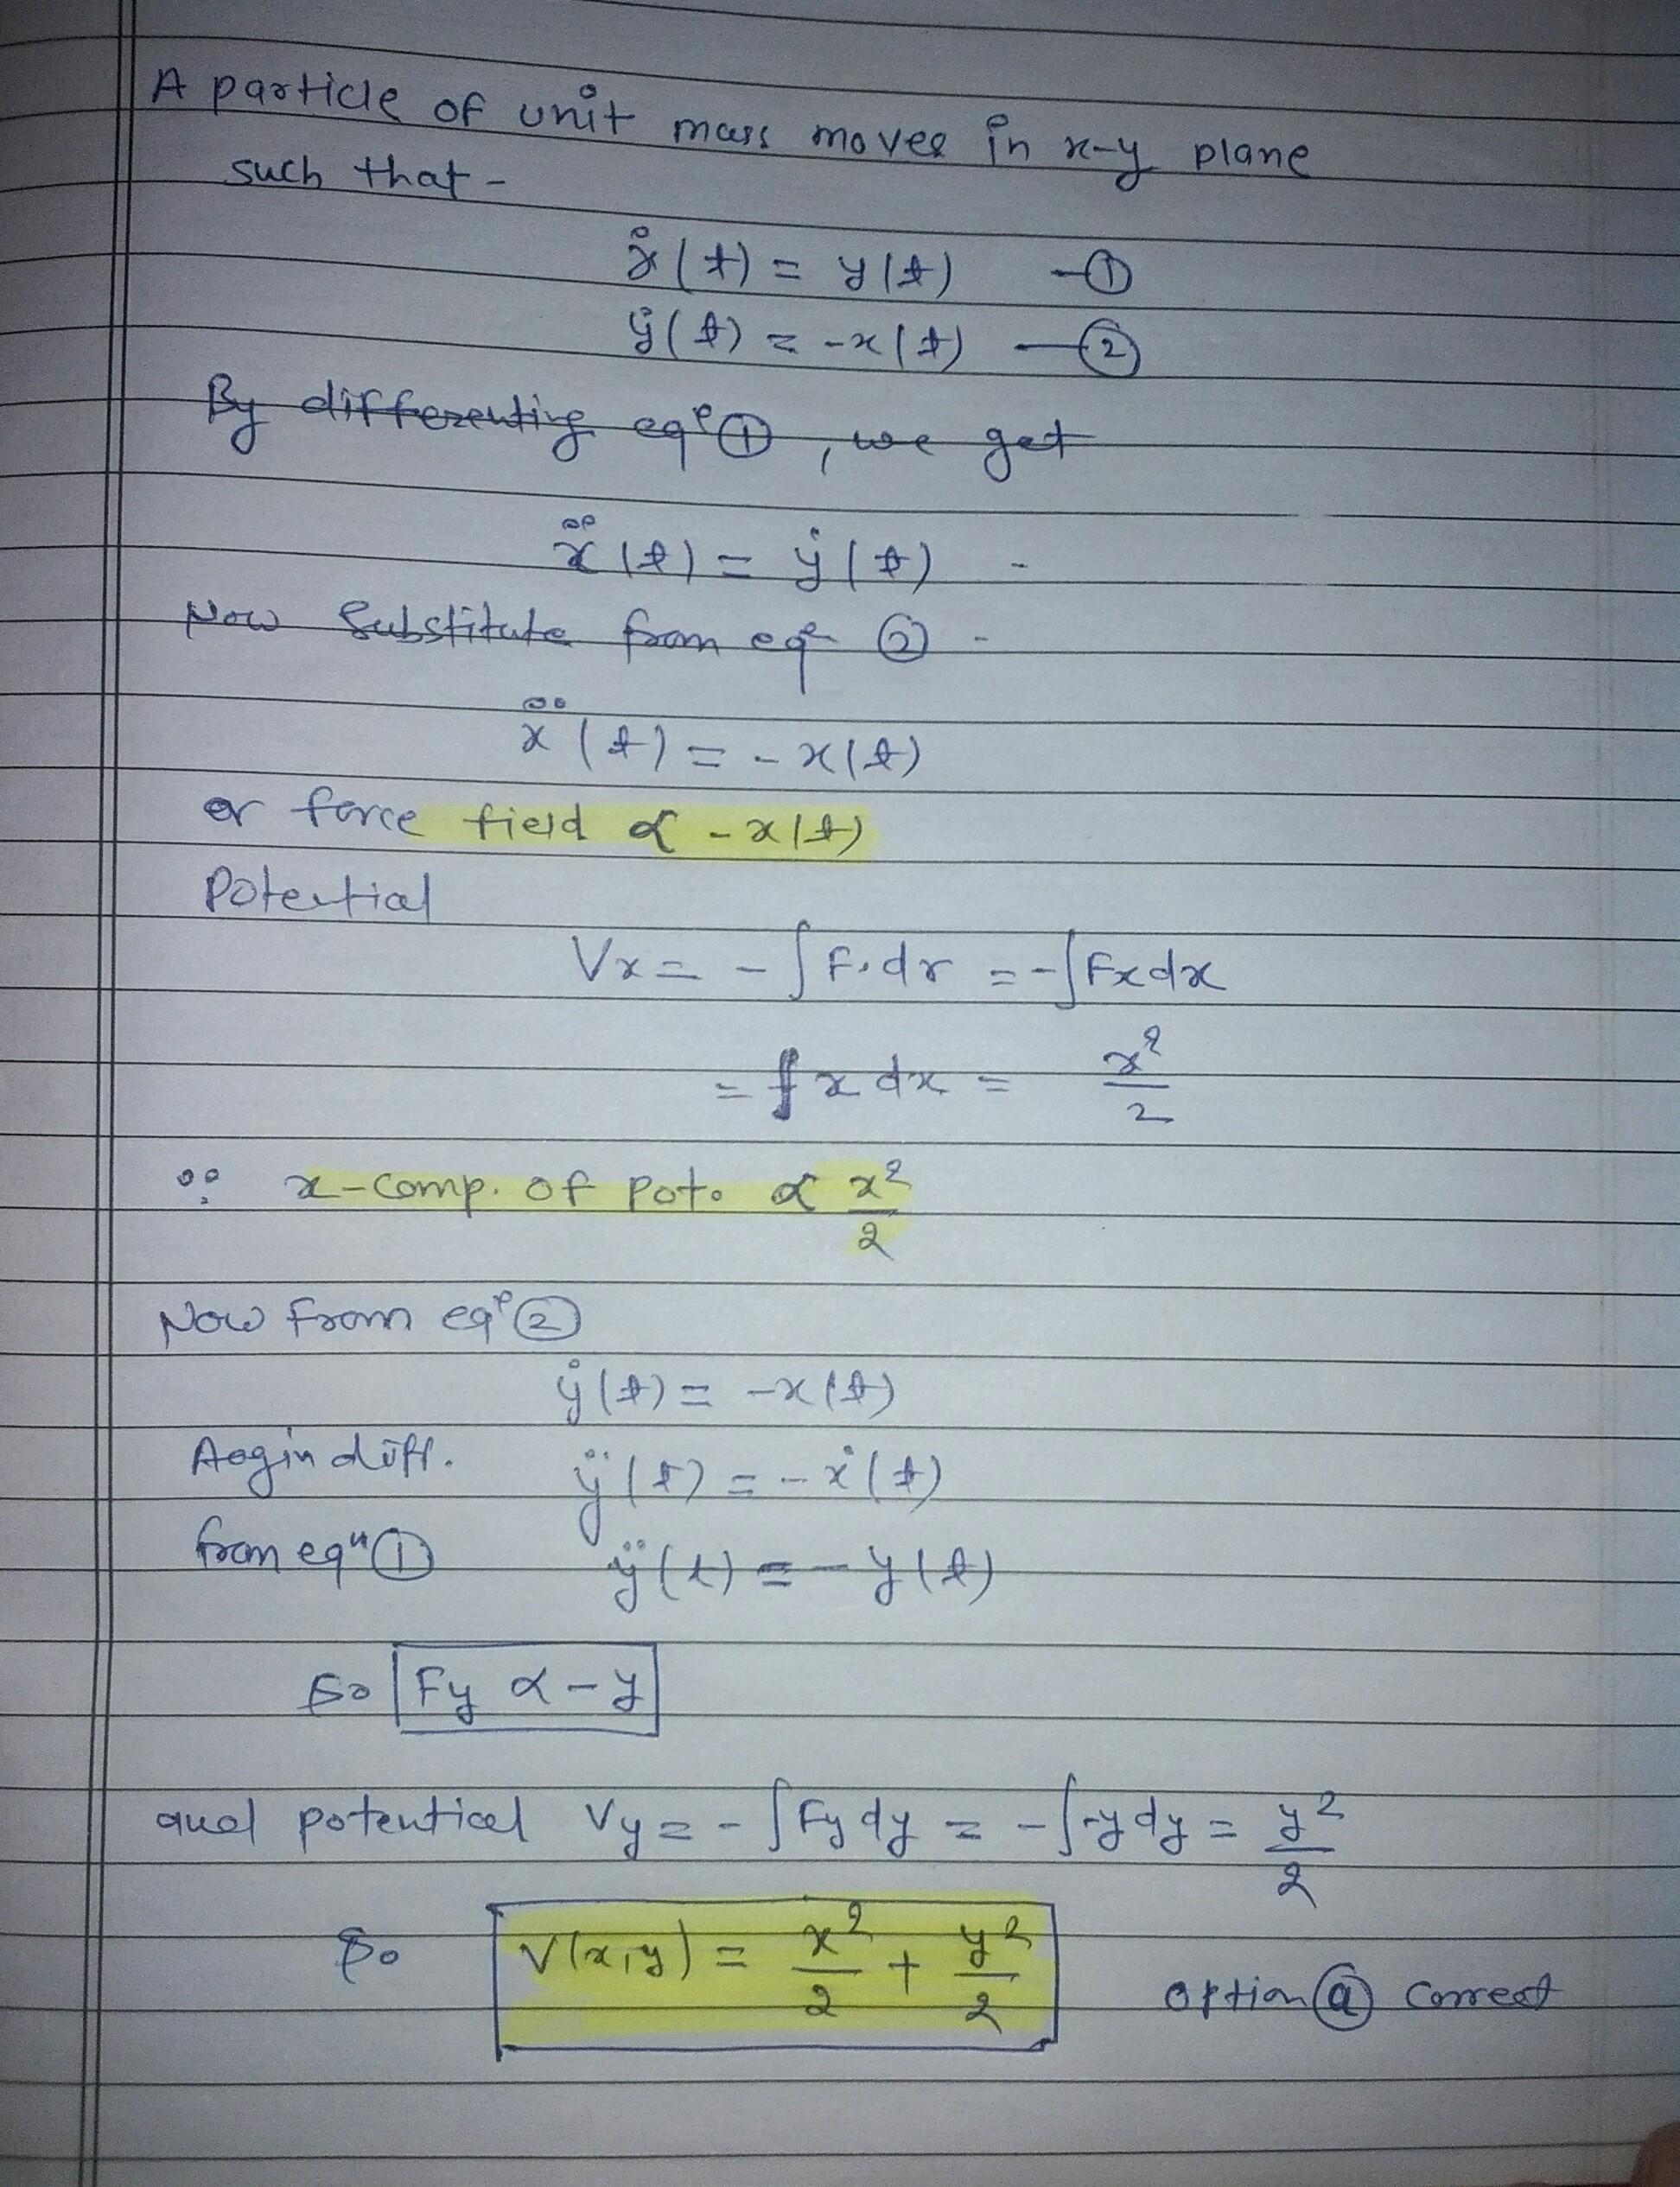 A particle of unit mass moves in x-y plane
such that -
ẋ(t) = y(t) —①
ẏ(t) = -x(t) —②
By differenting eqⁿ ①, we get
ẍ(t) = ẏ(t) -
Now Substitute from eqⁿ ② -
ẍ(t) = -x(t)
or force field ∝ -x(t)
Potential
Vx = - ∫F.dr = -∫Fxdx
= ∫x dx = x²/2
∴ x-comp. of pot. ∝ x²/2
Now from eqⁿ ②
ẏ(t) = -x(t)
Aagin diff. ÿ(t) = -ẋ(t)
from eqⁿ ① ÿ(t) = -y(t)
So Fy ∝ -y
and potential Vy = -∫Fydy = -∫-ydy = y²/2
So V(x,y) = x²/2 + y²/2 option ⓐ correct